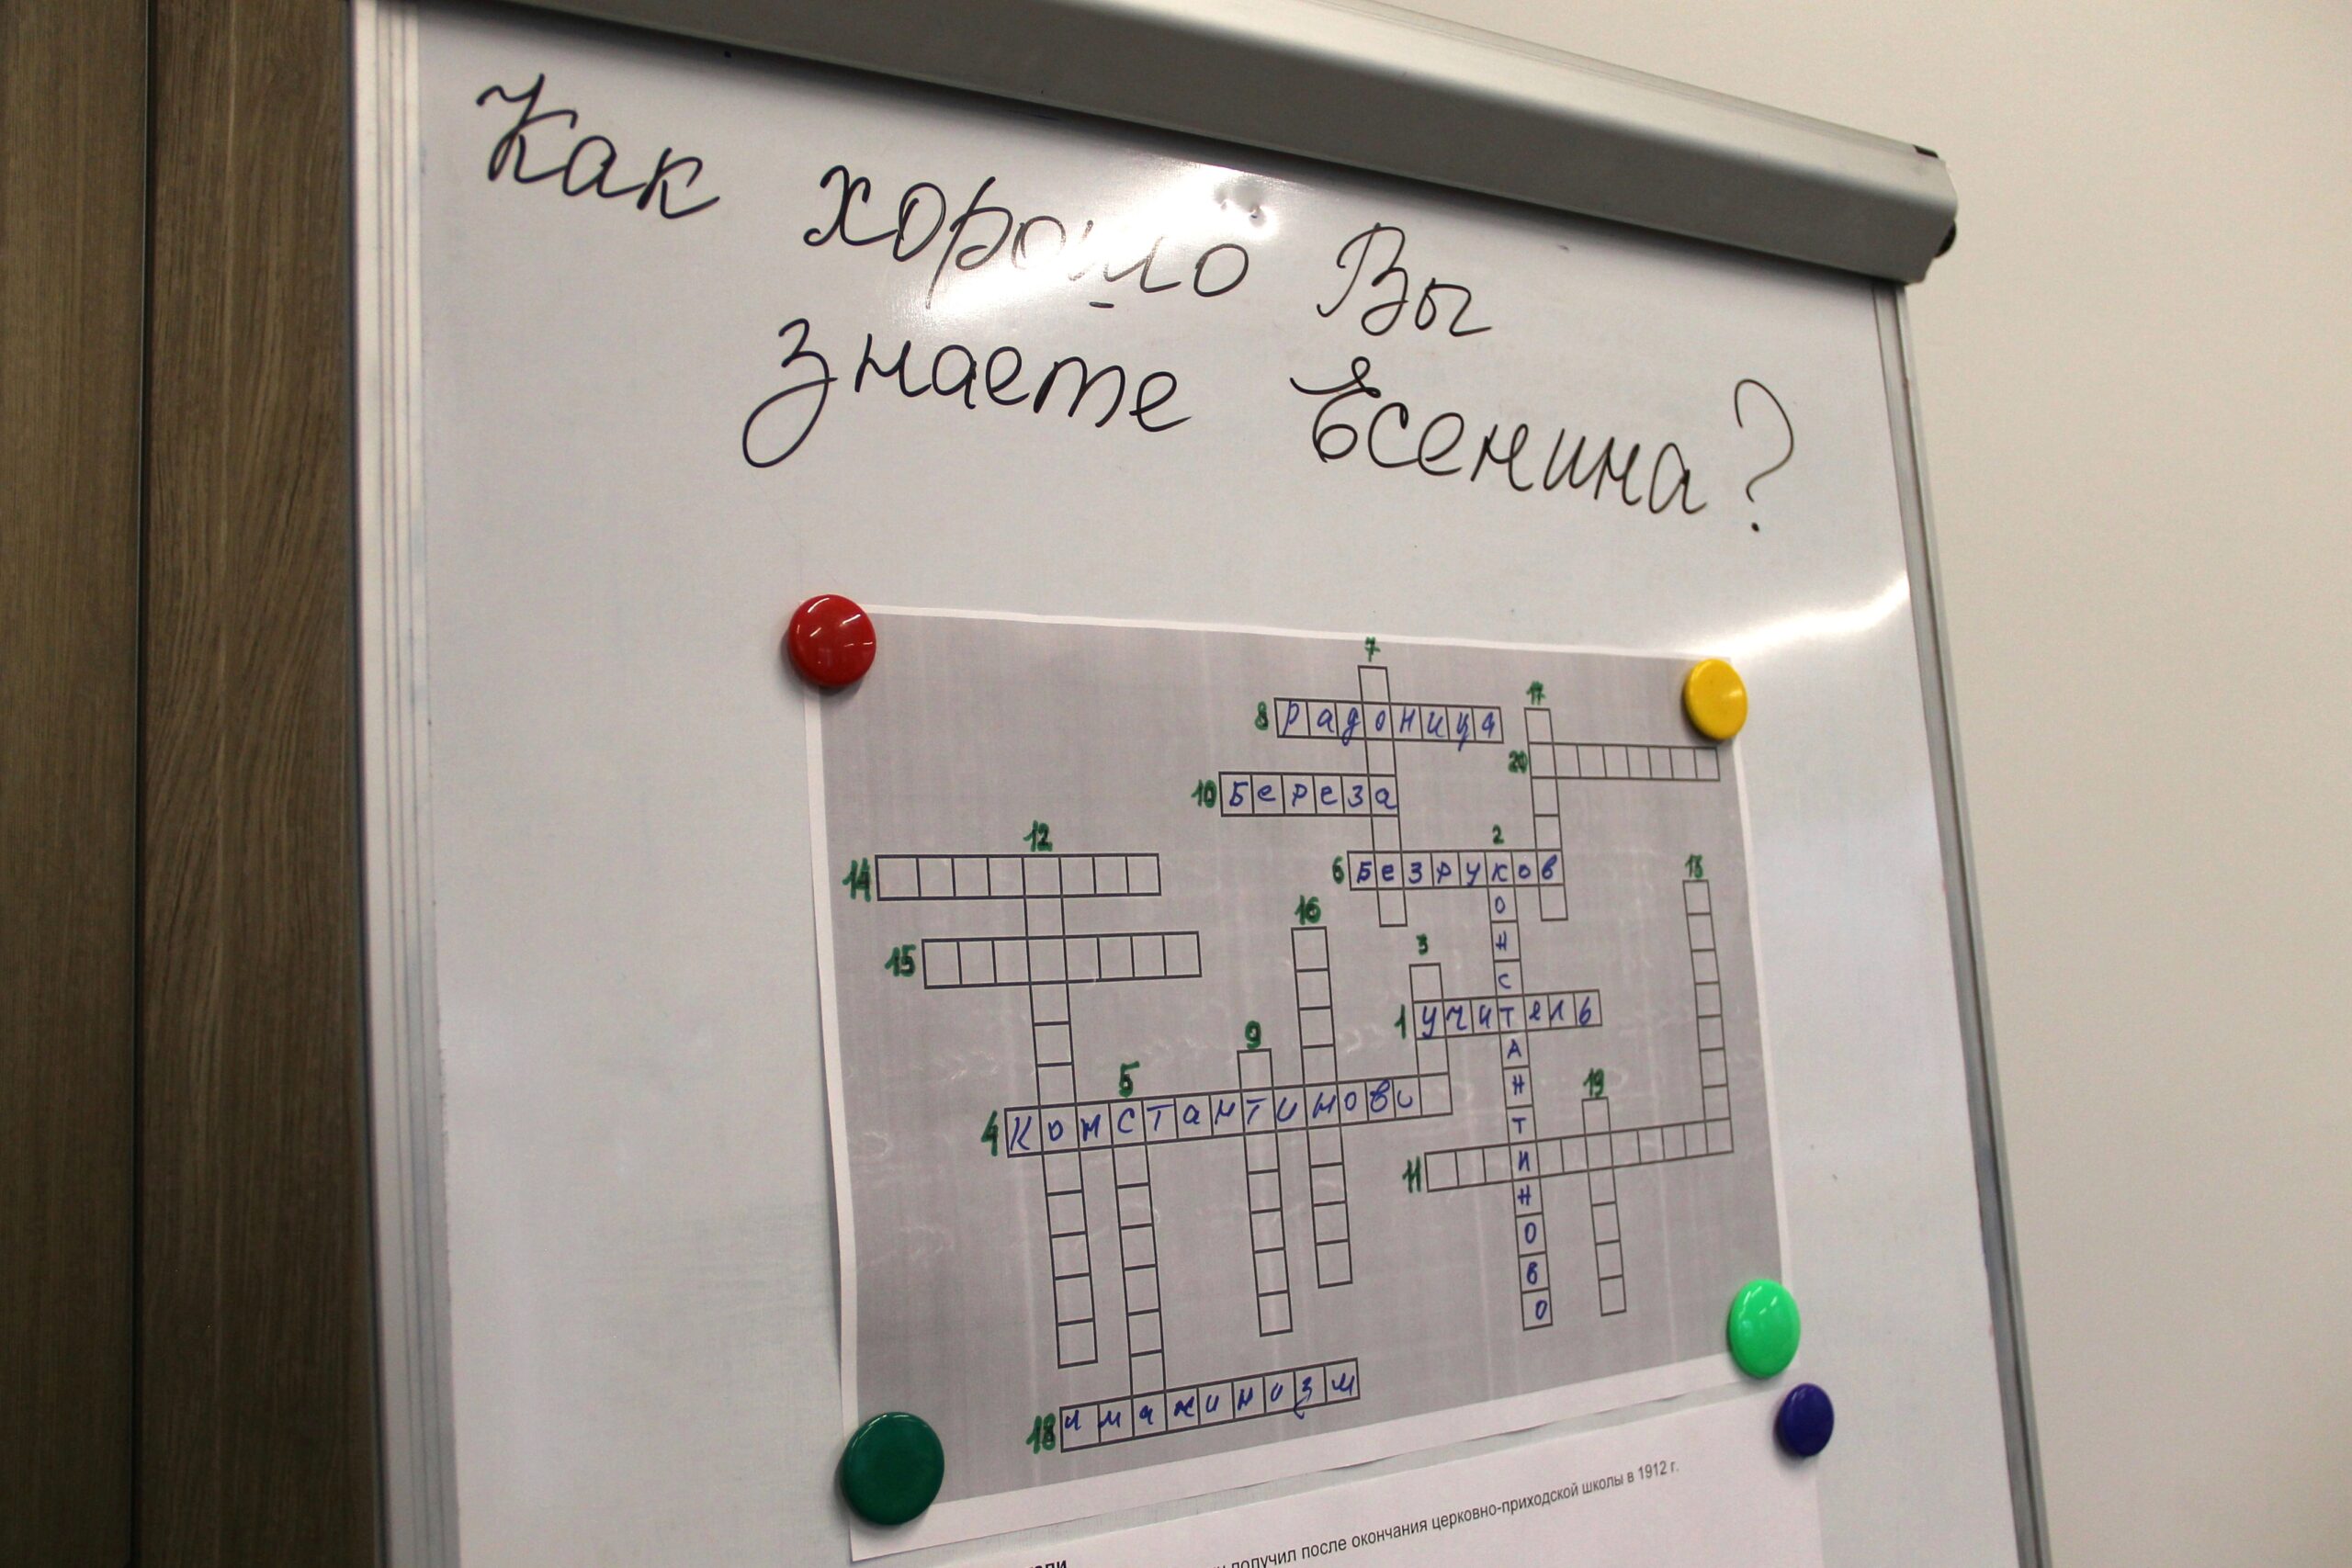 Как хорошо Вы
знаете Есенина?
7
17
8 Радоница
20
10 Береза
12
2
14
6 Безруков
18
16
3
15
1 учитель
9
5
19
4 Константинови
11
Константиново
18 имажинизм
получил после окончания церковно-приходской школы в 1912 г.